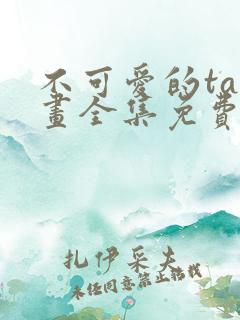 不可愛的ta
畫全集免費
扎伊采夫
未经同意禁止转载